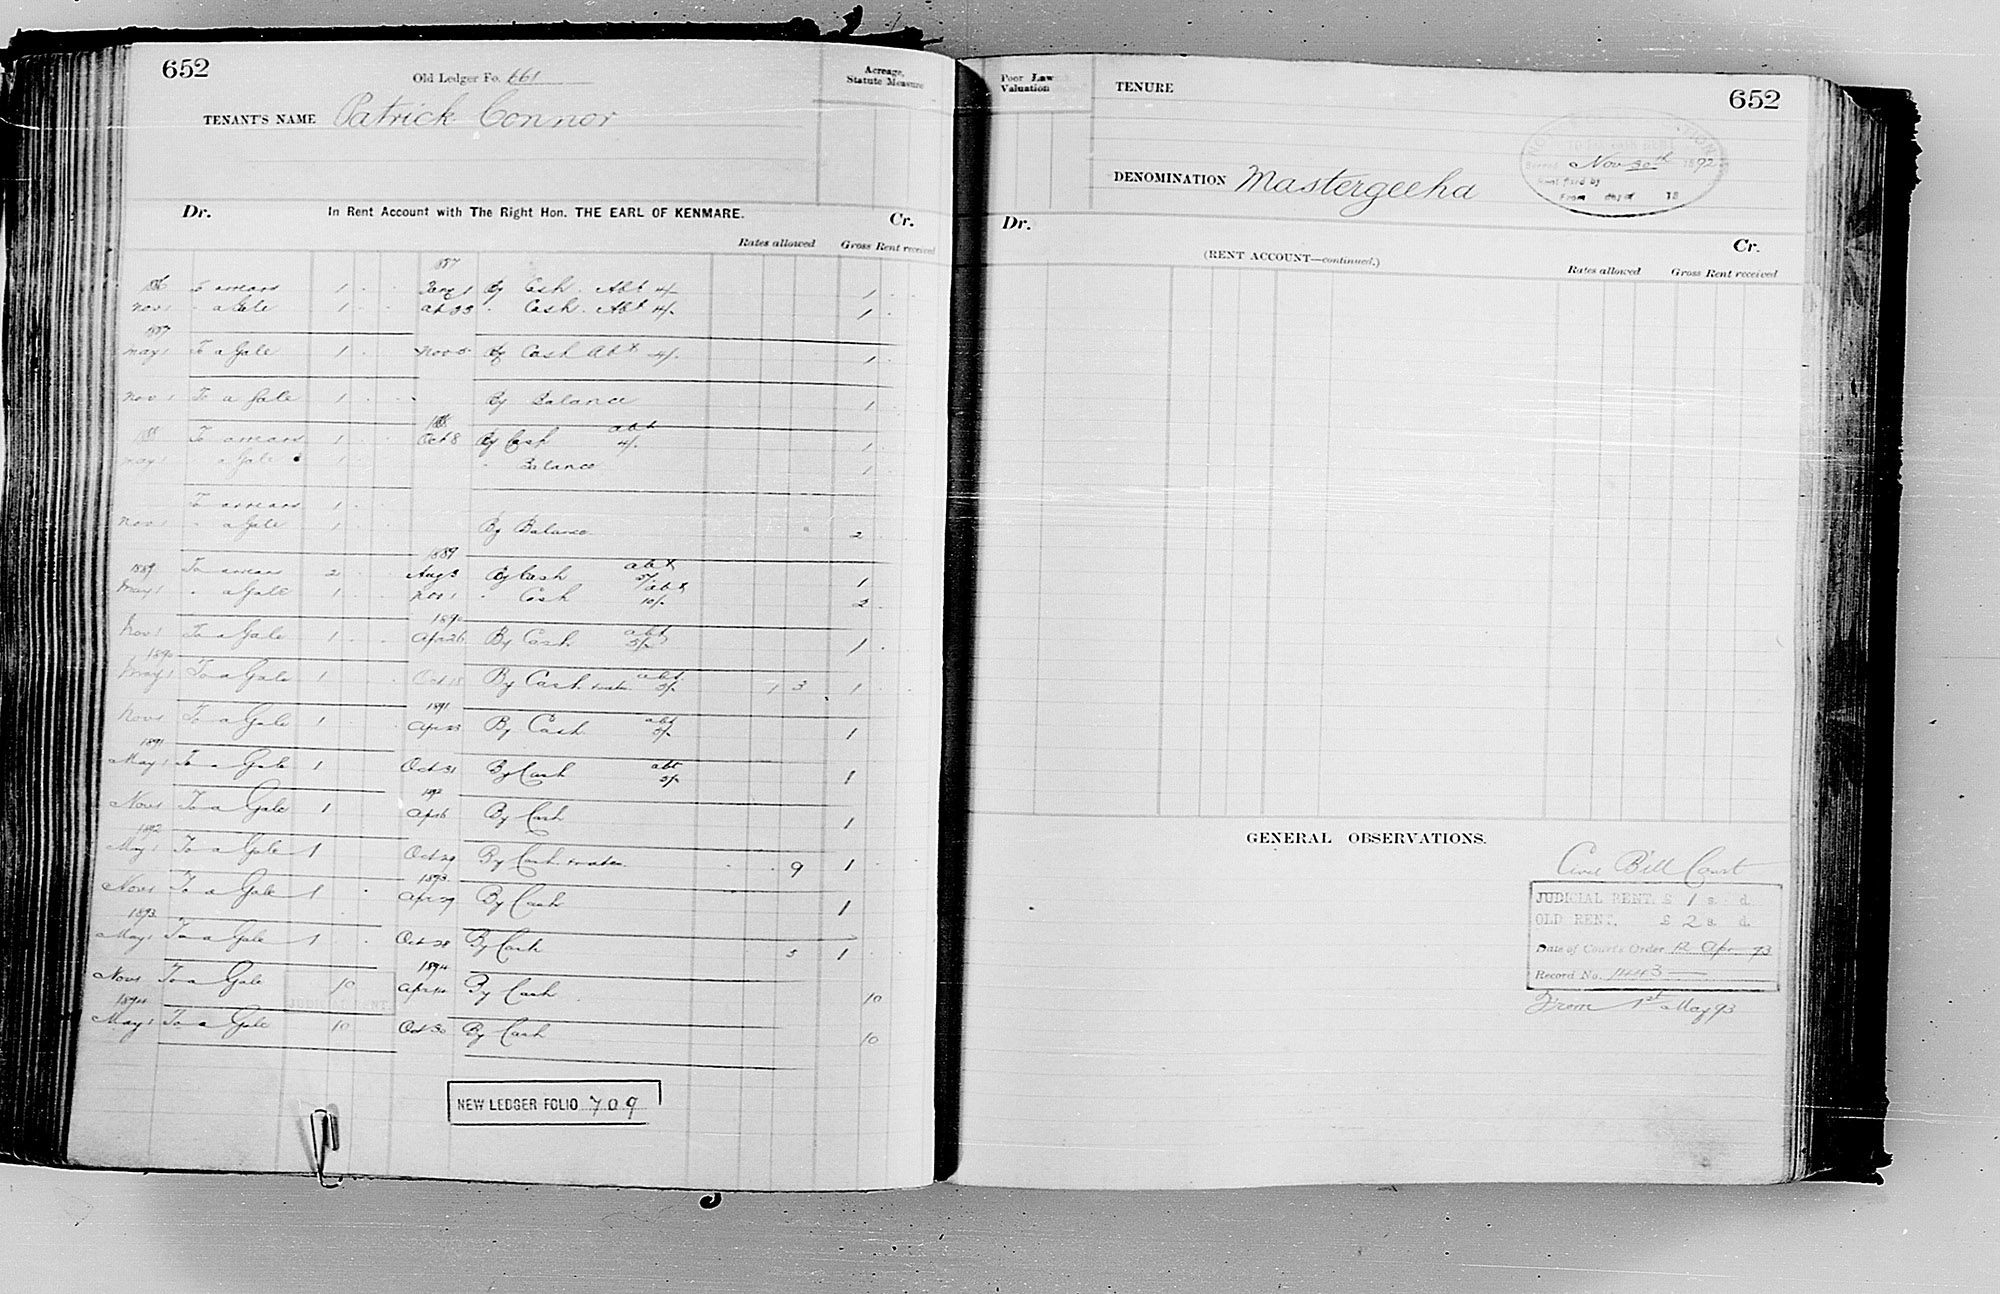 652
Old Ledger Fo. 661
Acreage, Statute Measure
TENANT'S NAME Patrick Connor
Dr. In Rent Account with The Right Hon. THE EARL OF KENMARE. Cr.
Rates allowed Gross Rent received
1887
To arrears 1 By Cash. Abt 4/- 1
Nov 1 " a Gale 1 Cash. Abt 4/- 1
1887
May 1 To a Gale 1 Nov 5 By Cash Abt 4/- 1
Nov 1 To a Gale 1 By Balance 1
To arrears 1 Oct 8 By Cash abt 4/- 1
May 1 " a Gale 1 " Balance 1
To arrears 1
Nov 1 " a Gale 1 By Balance 2
1889
1889 To arrears 2 Aug 3 By Cash abt 5/- 1
May 1 " a Gale 1 Nov 1 " Cash abt 10/- 2
1890
Nov 1 To a Gale 1 Apr 26 By Cash abt 5/- 1
1890
May 1 To a Gale 1 Oct 18 By Cash & rates abt 5/- 1 3 1
1891
Nov 1 To a Gale 1 Apr 23 By Cash abt 5/- 1
1891
May 1 To a Gale 1 Oct 31 By Cash abt 5/- 1
1892
Nov 1 To a Gale 1 Apr 6 By Cash 1
1892
May 1 To a Gale 1 Oct 29 By Cash & rates 9 1
1893
Nov 1 To a Gale 1 Apr 29 By Cash 1
1893
May 1 To a Gale 1 Oct 28 By Cash 5 1
1894
Nov 1 To a Gale 10 Apr By Cash 10
JUDICIAL RENT
1894
May 1 To a Gale 10 Oct 30 By Cash 10
NEW LEDGER FOLIO 709
Poor Law Valuation
TENURE
652
Nov 30th 1892
DENOMINATION Mastergeeha
From day of 18
Dr. Cr.
(RENT ACCOUNT—continued.)
Rates allowed Gross Rent received
GENERAL OBSERVATIONS.
Civil Bill Court
JUDICIAL RENT. £ 1 s. d.
OLD RENT. £ 2 s. d.
Date of Court's Order 12 Apr 93
Record No. 1443
From 1st May 93